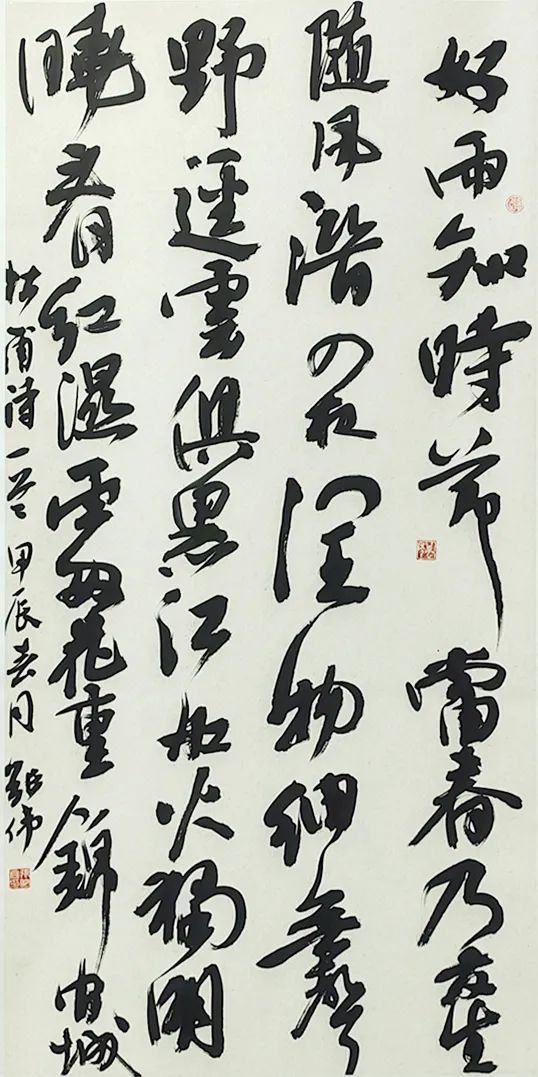 好雨知時節當春乃發生
随風潛入夜潤物細無聲
野逕雲俱黑江船火獨明
曉看紅濕處花重錦官城
杜甫诗一首甲辰春月